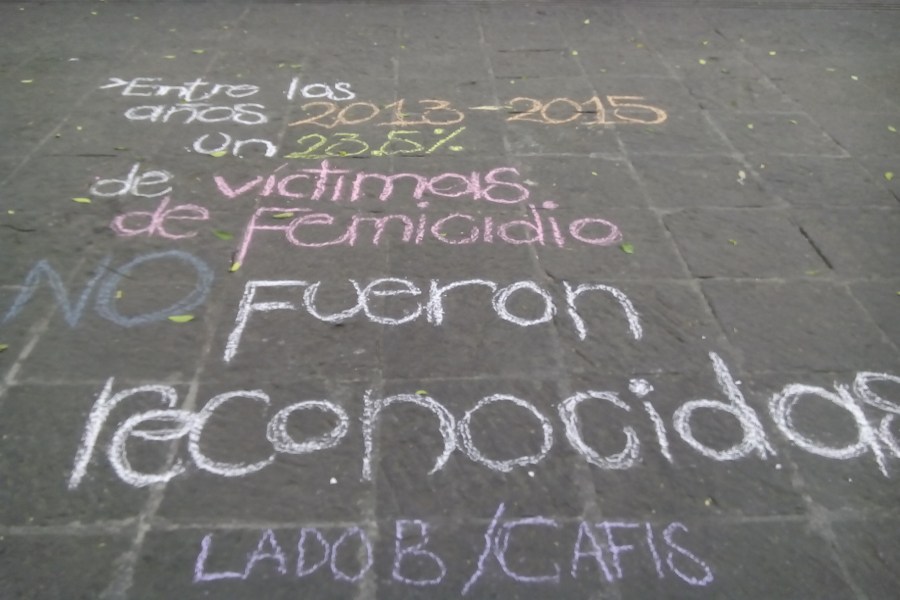 >Entre los
años 2013-2015
un 23.5%
de victimas
de Femicidio
NO Fueron
reconocidas
LADO B/CAFIS